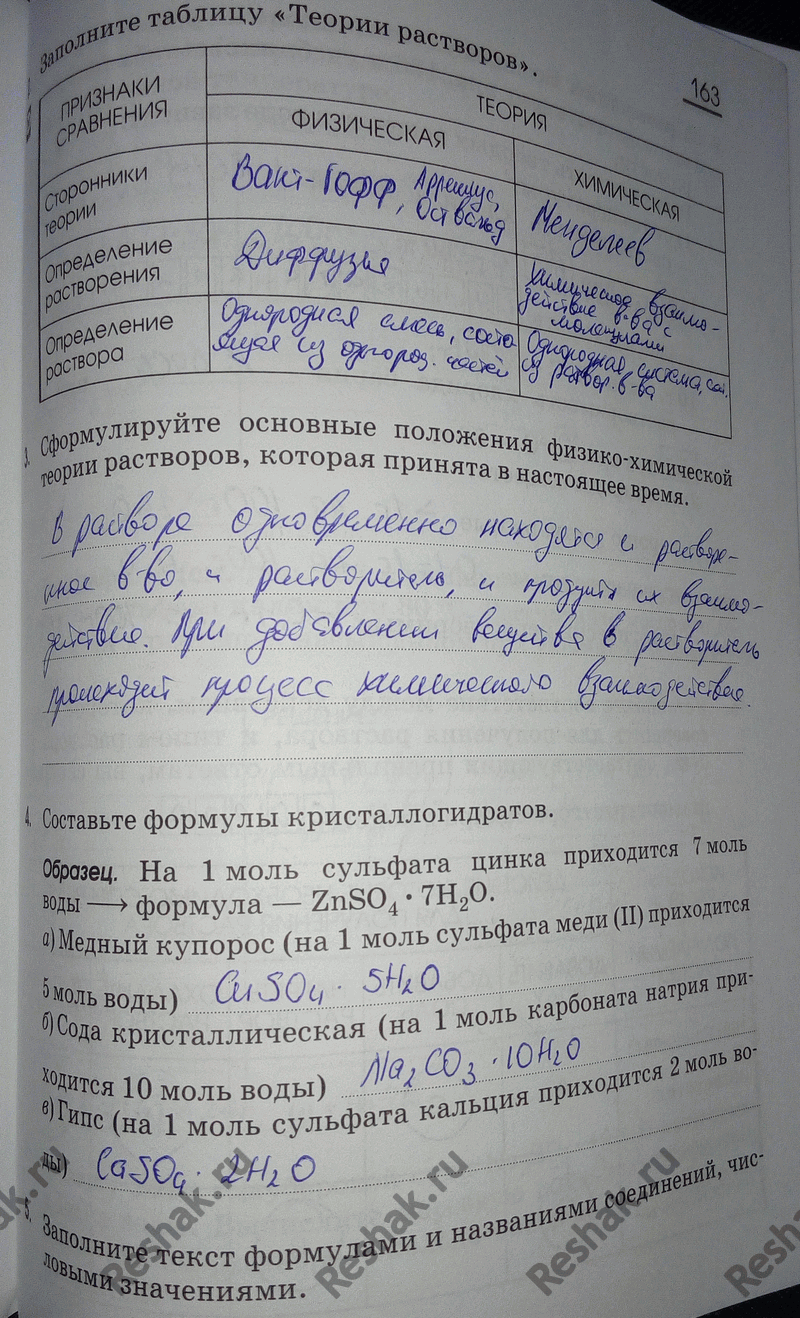 Заполните таблицу «Теории растворов».
163
ПРИЗНАКИ
СРАВНЕНИЯ
ТЕОРИЯ
ФИЗИЧЕСКАЯ
ХИМИЧЕСКАЯ
Сторонники
теории
Вант-Гофф, Аррениус,
Оствальд
Менделеев
Определение
растворения
Диффузия
Химическое взаимо-
действие в-ва с
молекулами
Определение
раствора
Однородная смесь, состо-
ящая из однород. частей
Однородная система, сост.
из раствор. в-ва
3. Сформулируйте основные положения физико-химической
теории растворов, которая принята в настоящее время.
В растворе одновременно находятся и раство-
ное в-во, и растворитель, и продукты их взаимо-
действие. При добавлении вещества в растворитель
происходит процесс химического взаимодействие.
4. Составьте формулы кристаллогидратов.
Образец. На 1 моль сульфата цинка приходится 7 моль
воды ⟶ формула — ZnSO₄ · 7H₂O.
а) Медный купорос (на 1 моль сульфата меди (II) приходится
5 моль воды) CuSO₄ · 5H₂O
б) Сода кристаллическая (на 1 моль карбоната натрия при-
ходится 10 моль воды) Na₂CO₃ · 10H₂O
в) Гипс (на 1 моль сульфата кальция приходится 2 моль во-
ды) CaSO₄ · 2H₂O
5. Заполните текст формулами и названиями соединений, чис-
ловыми значениями.
Reshak.ru
Reshak.ru
Reshak.ru